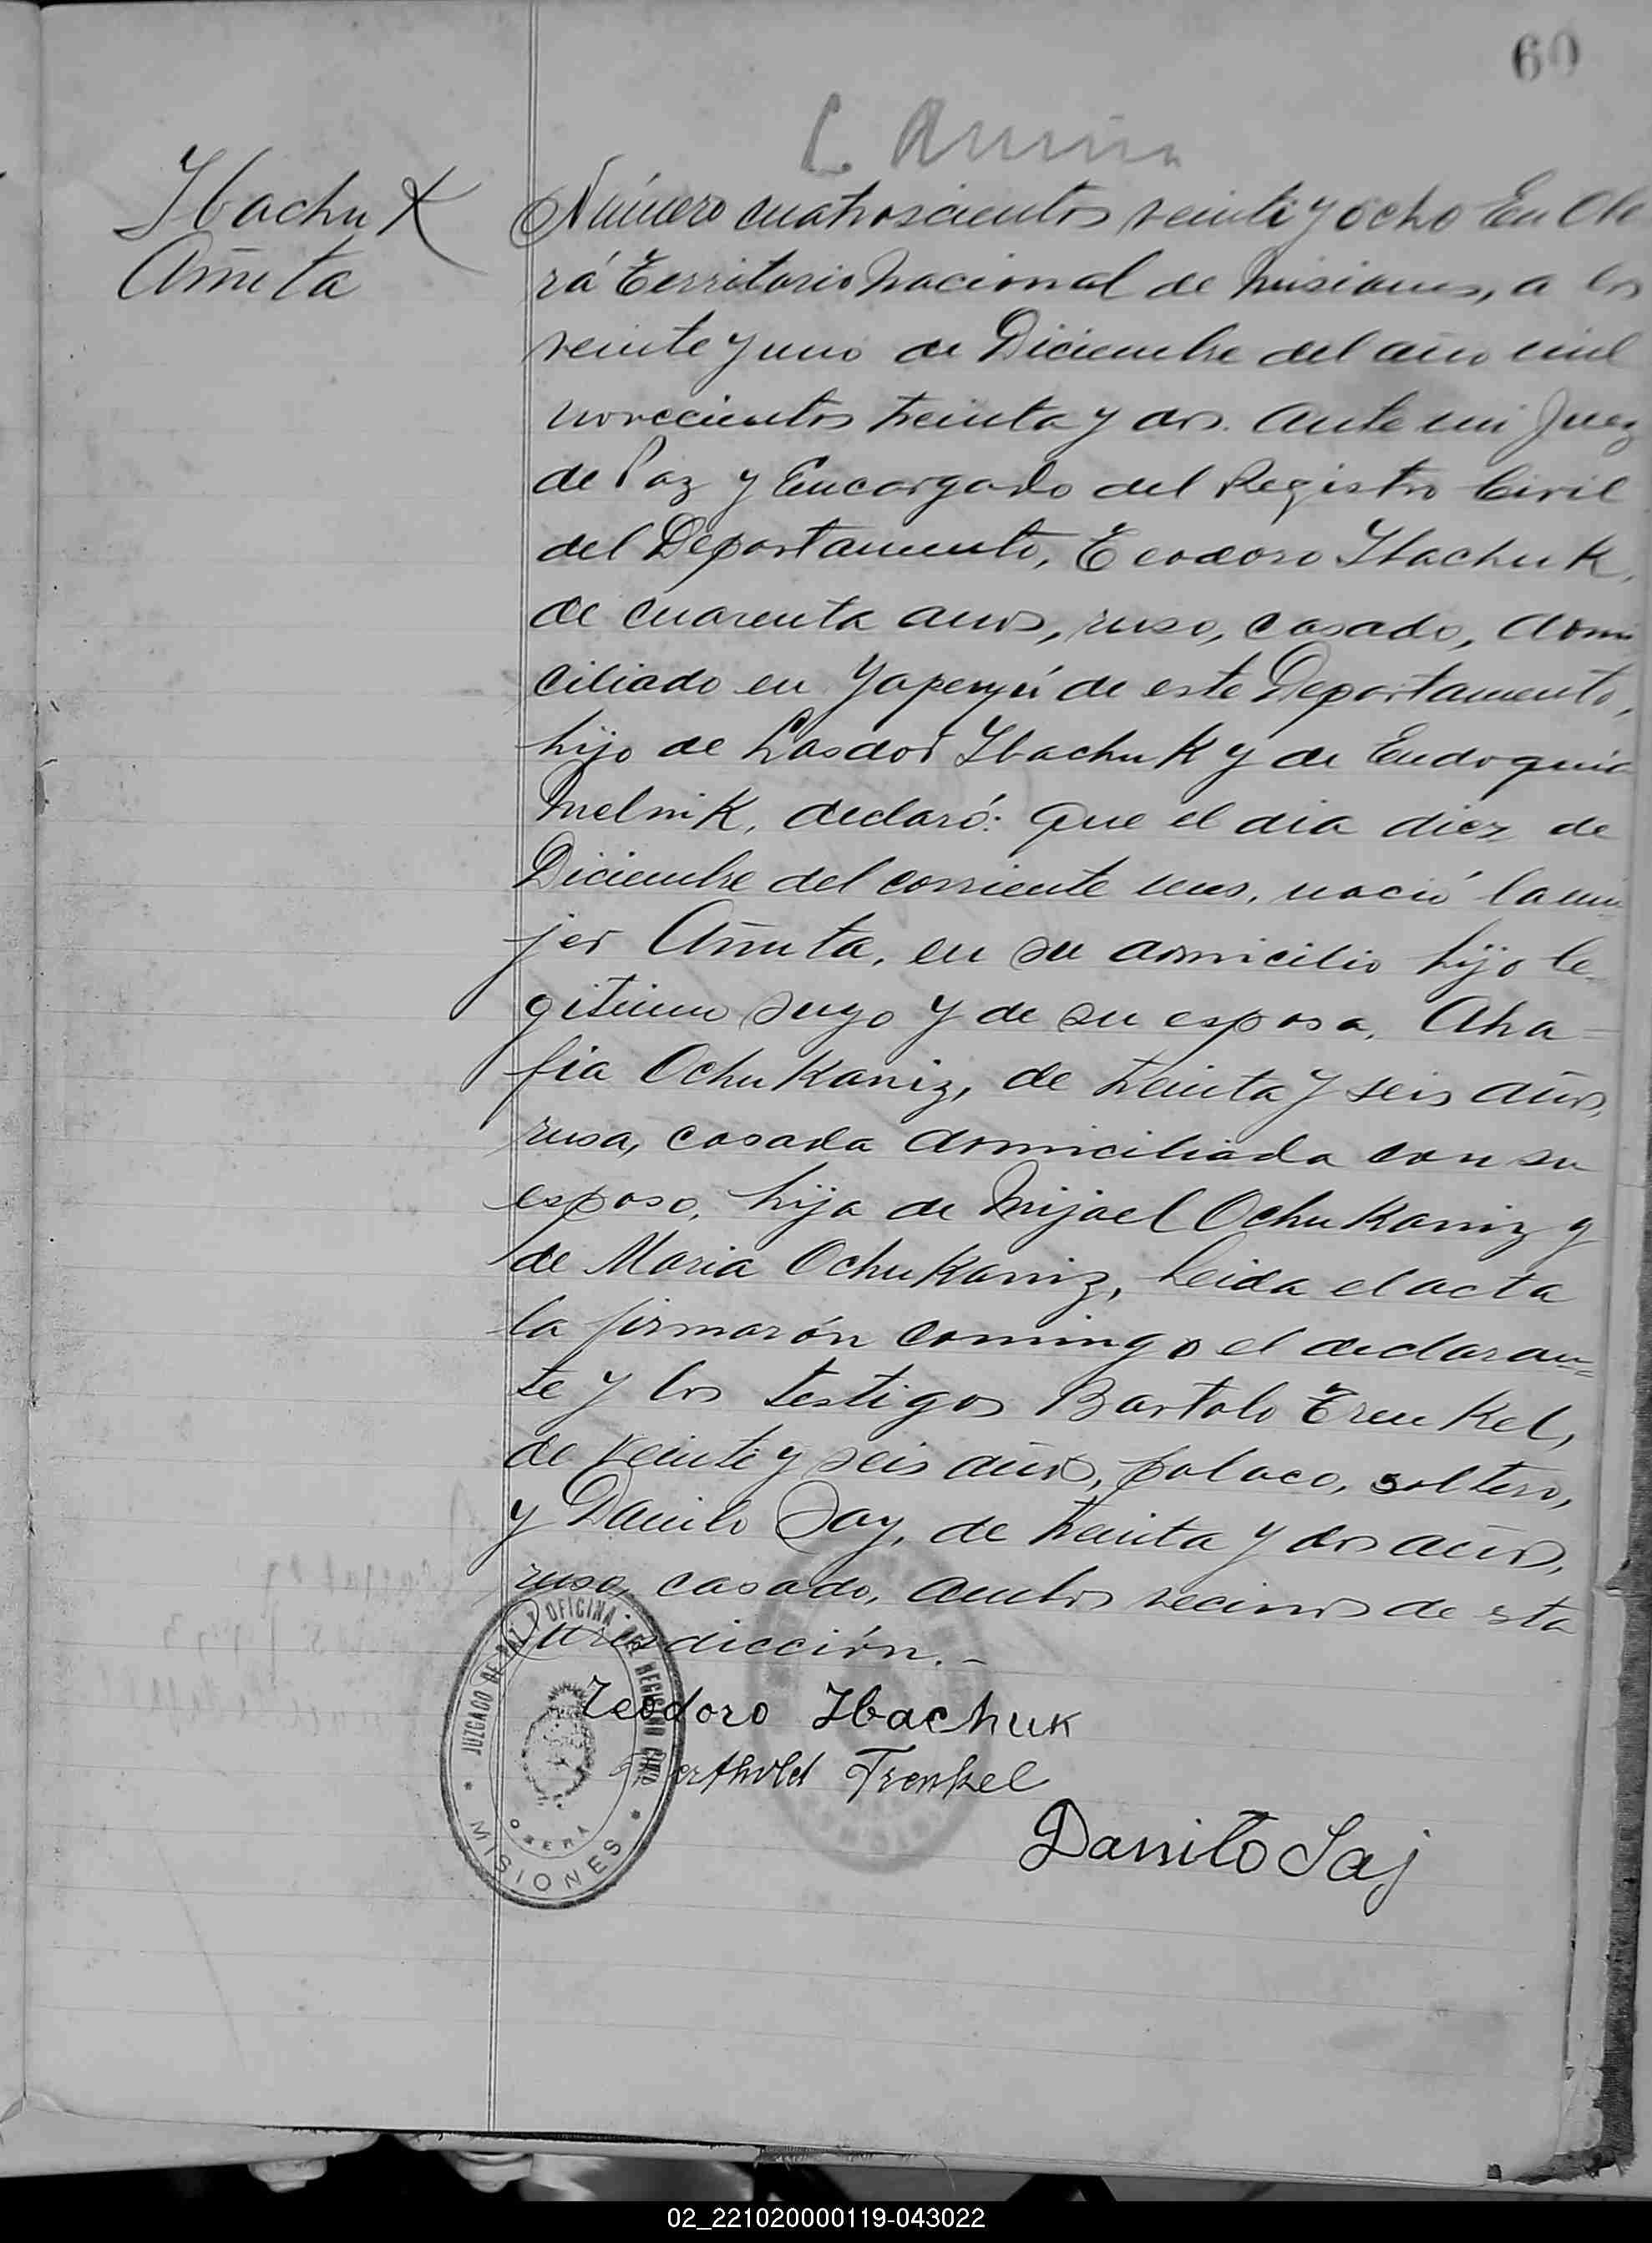 60
Ibachuk
Añuta
Número cuatroscientos veinti y ocho En Obe
rá Territorio Nacional de Misiones, a los
veinte y uno de Diciembre del año mil
novecientos treinta y dos. Ante mi Juez
de Paz y Encargado del Registro Civil
del Departamento, Teodoro Ibachuk,
de cuarenta anos, ruso, casado, domi
ciliado en Yapeyú de este Departamento,
hijo de Lasdor Ibachuk y de Eudoquia
Melnik, declaró: Que el dia diez de
Diciembre del corriente mes, nació la mu-
jer Añuta, en su domicilio hijo le-
gitimo suyo y de su esposa, Aha-
fia Ochukaniz, de treinta y seis años,
rusa, casada domiciliada con su
esposo, hija de Mijael Ochukaniz y
de Maria Ochukaniz, Leida el acta
la firmarón comingo el declaran=
te y los testigos Bartolo Trenkel,
de veinte y seis años, polaco, soltero,
y Danilo Say, de treinta y dos años,
ruso, casado, ambos vecinos de esta
Jurisdicción.-
JUZGADO DE PAZ Y OFICINA DEL REGISTRO CIVIL
OBERA
* MISIONES *
Teodoro Ibachuk
Berthold Trenkel
Danilo Saj
02_221020000119-043022